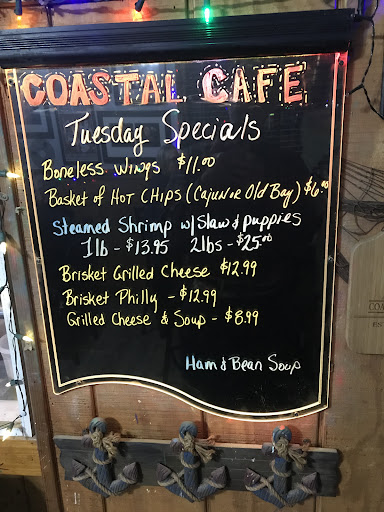 COASTAL CAFE
Tuesday Specials
Boneless Wings $11.00
Basket of Hot Chips (Cajun or Old Bay) $6.00
Steamed Shrimp w/Slaw & puppies
1lb - $13.95 2lbs - $25.00
Brisket Grilled Cheese $12.99
Brisket Philly - $12.99
Grilled Cheese & Soup - $8.99
Ham & Bean Soup